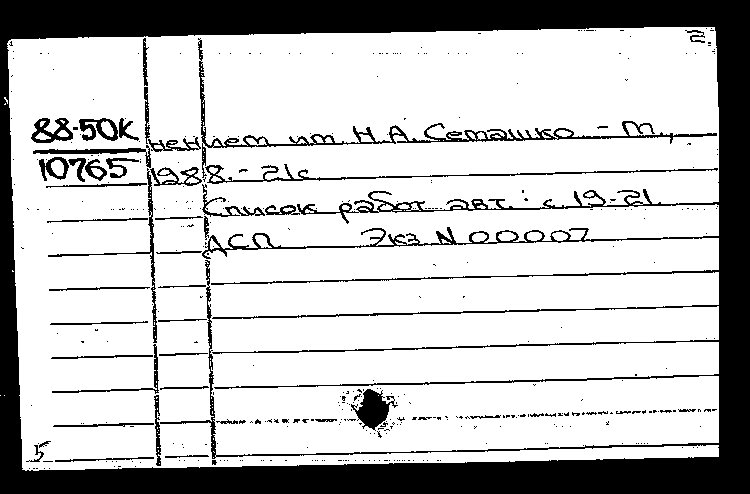 2.
88-50к
10765
нением им Н.А. Семашко. - М.,
1988. - 21с
Список работ авт.: с. 19-21.
ДСП Экз N 00007
5